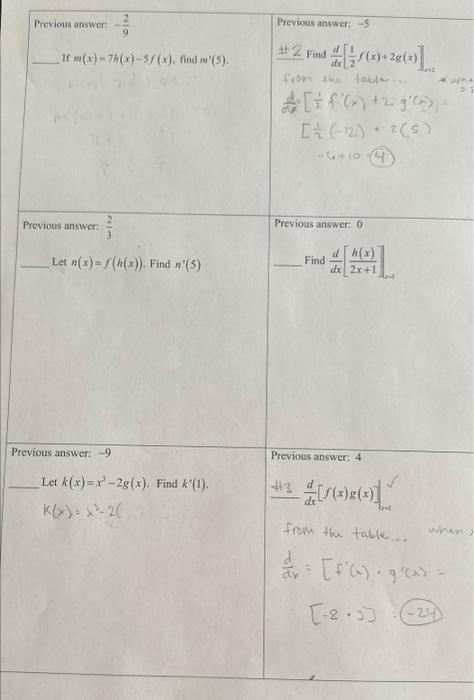 Previous answer: -2/9
If m(x) = 7h(x) - 5f(x), find m'(5).
Previous answer: -5
#2 Find d/dx [1/2 f(x) + 2g(x)] x=2
from the table...
d/dx = [1/2 f'(x) + 2 g'(x)] =
[1/2 (-12) + 2(5)
-6+10 = 4
Previous answer: 2/3
Let n(x) = f(h(x)). Find n'(5)
Previous answer: 0
Find d/dx [h(x)/2x+1] x=1
Previous answer: -9
Let k(x) = x³ - 2g(x). Find k'(1).
K(x) = x³ - 2(
Previous answer: 4
#3 d/dx [f(x)g(x)] x=1 ✓
from the table... when
d/dx = [f'(x) · g'(x) =
[-8 · 3] = -24